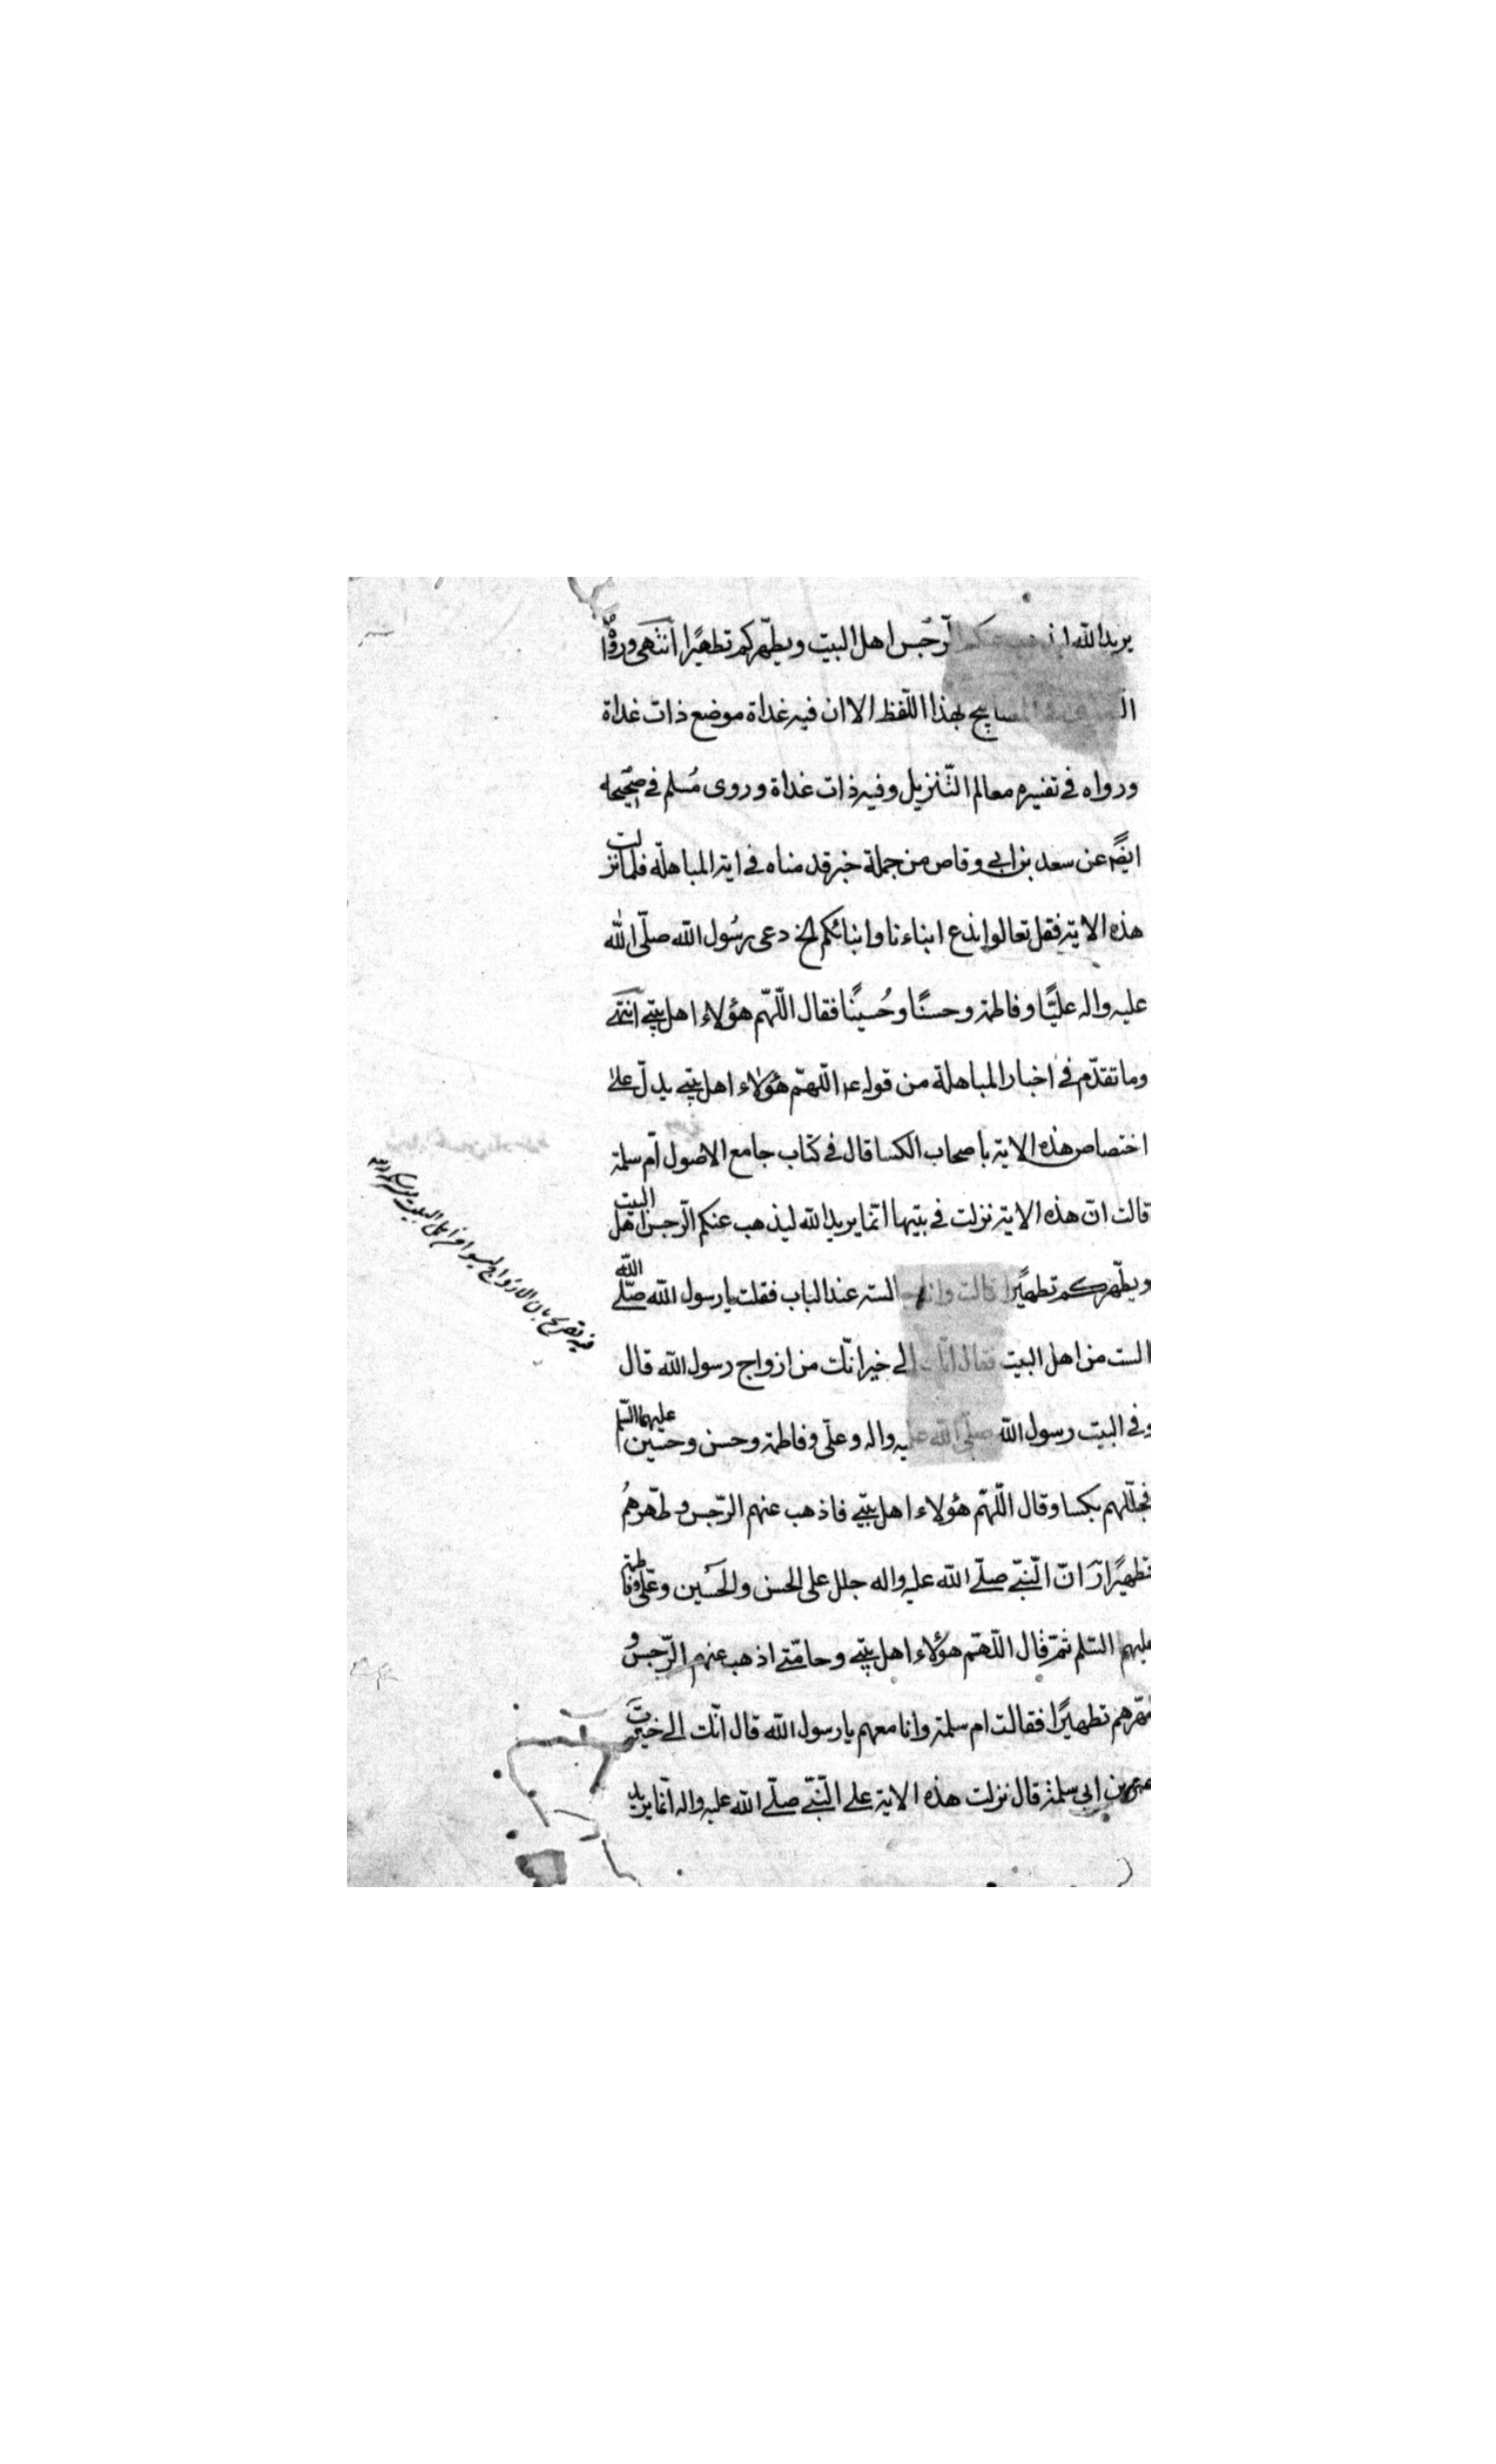 يريد الله ليذهب عنكم الرّجس اهل البيت ويطهّركم تطهيرًا انتهى ورواه
المصابيح بهذا اللّفظ الا ان فيه غداة موضع ذات غداة
ورواه في تفسيره معالم التّنزيل وفيه ذات غداة وروى مُسلم في صحيحه
ايضًا عن سعد بن ابي وقاص من جملة خبر قدمناه في اية المباهلة فلما نزلت
هذه الاية فقل تعالوا ندع ابناءنا وابنائكم الخ دعى رسُول الله صلّى الله
عليه واله عليًّا وفاطمة وحسنًا وحُسينًا فقال اللّهمّ هؤلاء اهل بيتي انتهى
وما تقدّم في اخبار المباهلة من قوله ع اللّهمّ هؤلاء اهل بيتي يدلّ على
اختصاص هذه الاية باصحاب الكسا قال في كتاب جامع الاصول امّ سلمة
قالت انّ هذه الاية نزلت في بيتها انّما يريد الله ليذهب عنكم الرّجس اهل البيت
ويطّهركم تطهيرًا قالت وانا جالسة عند الباب فقلت يا رسول الله صلّى الله
الست من اهل البيت فقال انّك الى خير انّك من ازواج رسول الله قال
وفي البيت رسول الله صلّى الله عليه واله وعلّي وفاطمة وحسن وحسين عليهما السّلم
فجلّلهم بكسا وقال اللّهمّ هؤلاء اهل بيتي فاذهب عنهم الرّجس وطهّرهُم
تطهيرًا انّ النّبّي صلّى الله عليه واله جلل على الحسن والحسين وعلّي وفاطمة
عليهم السّلم ثمّ قال اللّهمّ هؤلاء اهل بيتي وحامّتي اذهب عنهم الرّجس و
طهّرهم تطهيرًا فقالت ام سلمة وانا معهم يا رسول الله قال انّك الى خير ت
عمر بن ابي سلمة قال نزلت هذه الاية على النّبّي صلّى الله عليه واله انّما يريد
فيه تصريح بان الازواج ليسوا من اهل البيت